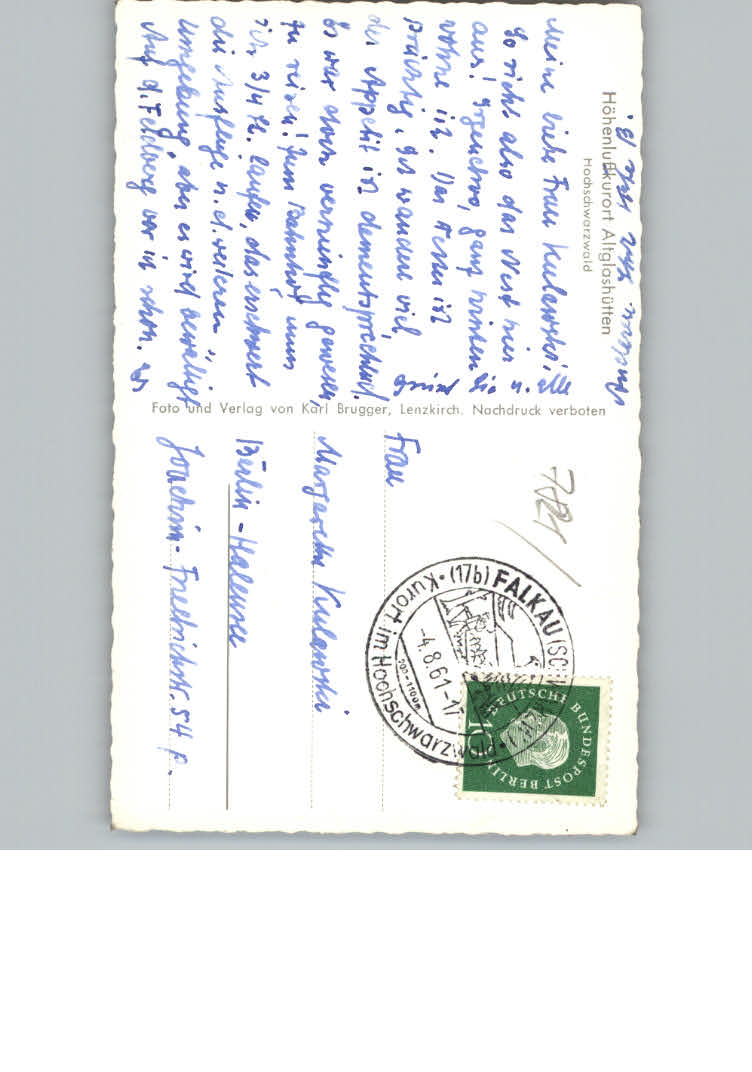 Höhenluftkurort Altglashütten
Hochschwarzwald
Meine liebe Frau Kulawski,
So sieht also das Nest hier
aus! Irgendwo, ganz hinten
wohne ich. Das Essen ist
prächtig, wir wandern viel,
der Appetit ist dementsprechend.
Es war doch vernünftig gewesen,
zu reisen! Zum Bahnhof muss
ich 3/4 St. laufen, das erschwert
die Ausflüge n. d. weiteren
Umgebung, aber es wird bewältigt
Auf d. Feldberg war ich schon. Es
grüßt Sie u. alle
Foto und Verlag von Karl Brugger, Lenzkirch. Nachdruck verboten
Frau
Margarete Kulawski
Berlin-Halensee
Joachim-Friedrichstr. 54 p.
(17b) FALKAU (SCHW
Kurort im Hochschwarzwald
-4.8.61-17
1100m
DEUTSCHE BUNDESPOST BERLIN
10